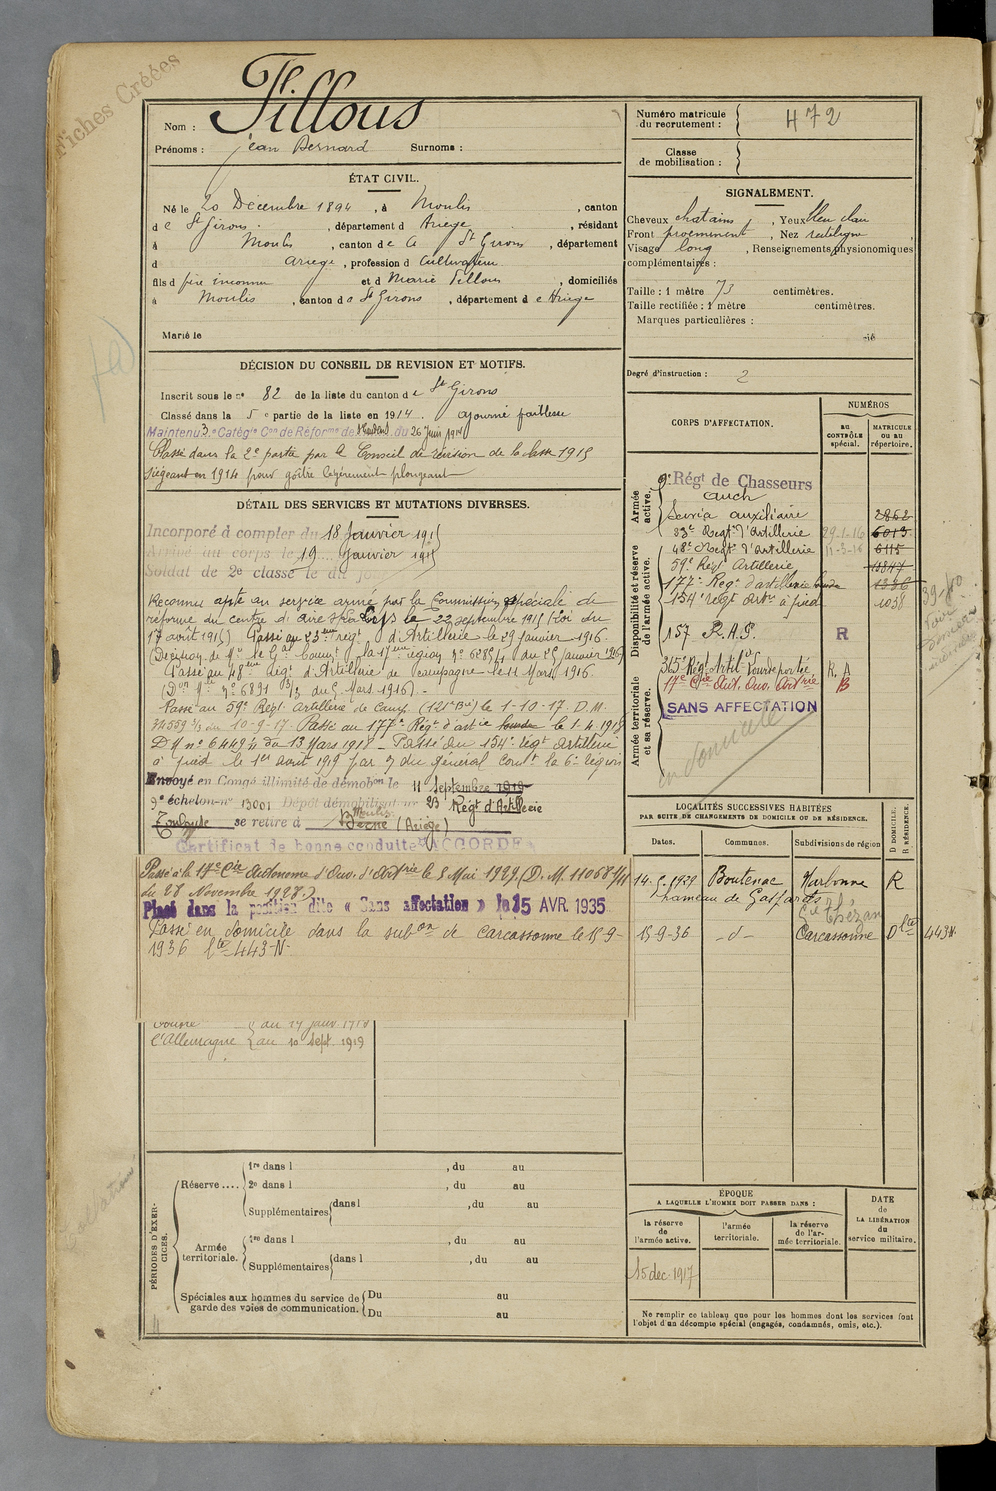 Fiches Créées
Nom : Fillous
Prénoms : Jean Bernard Surnoms :
Numéro matricule du recrutement : 472
Classe de mobilisation :
ÉTAT CIVIL.
Né le 20 Décembre 1894, à Moulis, canton
de St Girons, département d Ariege, résidant
à Moulis, canton de St Girons, département
d Ariege, profession d Cultivateur
fils d père inconnu et d Marie Fillous, domiciliés
à Moulis, canton de St Girons, département de Ariege
Marié le
SIGNALEMENT.
Cheveux chatains, Yeux bleu clair
Front proéminent, Nez rectiligne
Visage long, Renseignements physionomiques
complémentaires :
Taille : 1 mètre 73 centimètres.
Taille rectifiée : 1 mètre centimètres.
Marques particulières :
Degré d'instruction : 2
DÉCISION DU CONSEIL DE REVISION ET MOTIFS.
Inscrit sous le n° 82 de la liste du canton de St Girons
Classé dans la 5e partie de la liste en 1914. ajourné faiblesse
Maintenu 3e Catégie Con de Réforme de du 26 Juin
Classé dans la 2e partie par le Conseil de révision de la classe 1915
siégeant en 1914 pour goitre légèrement plongeant
DÉTAIL DES SERVICES ET MUTATIONS DIVERSES.
Incorporé à compter du 18 Janvier 1915
Arrivé au corps le 19 Janvier 1915
Soldat de 2e classe le du jr
Reconnu apte au service armé par la Commission spéciale de
réforme du centre d' le 22 septembre 1915 (Loi du
17 août 1915) Passé au 23eme régt d'Artillerie le 29 Janvier 1916
(Décision de Mr le Gal Commt la 17eme région No 6285/1 du 25 Janvier 1916)
Passé au 48eme Régt d'Artillerie de Campagne le 11 Mars 1916
(Don No 6891 3/3 du 5 Mars 1916).-
Passé au 59e Régt Artillerie de Camp. (121e Bie) le 1-10-17. D.M.
34559 3/3 du 10-9-17. Passé au 177e Régt d'artie lourde le 1.4.1918
DM no 6449 du 13 Mars 1918 - Passé au 154e régt Artillerie
à pied le 1er août 1919 par du général Comt la 6e région
Envoyé en Congé illimité de démobon le 11 Septembre 1919
9e échelon no 13001 Dépôt démobilisateur 23 Régt d'Artillerie
Toulouse se retire à Moulis (Ariège)
Certificat de bonne conduite ACCORDÉ
Passé à la 17e Cie Autonome d'Ouv. d'Artrie le 8 Mai 1929. (D.M. 11068
du 28 Novembre 1928.)
Placé dans la position dite « Sans affectation » le 15 AVR. 1935
Passé en domicile dans la subon de Carcassonne le 15-9-
1936 lte 443-N-
l'Allemagne au 10 Sept. 1919
CORPS D'AFFECTATION.
NUMÉROS
AU CONTRÔLE spécial.
MATRICULE OU AU répertoire.
Armée active.
Disponibilité et réserve de l'armée active.
Armée territoriale et sa réserve.
9e Régt de Chasseurs
Auch
Service auxiliaire 2862
23e Regt d'Artillerie 29-1-16 6013
48e Regt d'Artillerie 11-3-16 6115
59e Regt Artillerie
177e Regt d'artillerie lourde 1336
154e régt Artie à pied 1058
157 R.A.P. R
315e Régt Artil. Lourde portée R. A
17e Cie Aut. Ouv. Artrie B
SANS AFFECTATION
en domicile
LOCALITÉS SUCCESSIVES HABITÉES
PAR SUITE DE CHANGEMENTS DE DOMICILE OU DE RÉSIDENCE.
Dates. Communes. Subdivisions de région D DOMICILE. R RÉSIDENCE.
14-5-1929 Boutenac Narbonne R
hameau de Gasparets
Thézan
15-9-36 -d- Carcassonne D lte 443N
PÉRIODES D'EXERCICES.
Réserve....
1re dans l , du au
2e dans l , du au
Supplémentaires dans l , du au
Armée territoriale.
1re dans l , du au
Supplémentaires dans l , du au
Spéciales aux hommes du service de garde des voies de communication.
Du au
Du au
ÉPOQUE
A LAQUELLE L'HOMME DOIT PASSER DANS :
la réserve de l'armée active.
l'armée territoriale.
la réserve de l'armée territoriale.
DATE de LA LIBÉRATION du service militaire.
15 dec. 1917
Ne remplir ce tableau que pour les hommes dont les services font
l'objet d'un décompte spécial (engagés, condamnés, omis, etc.).